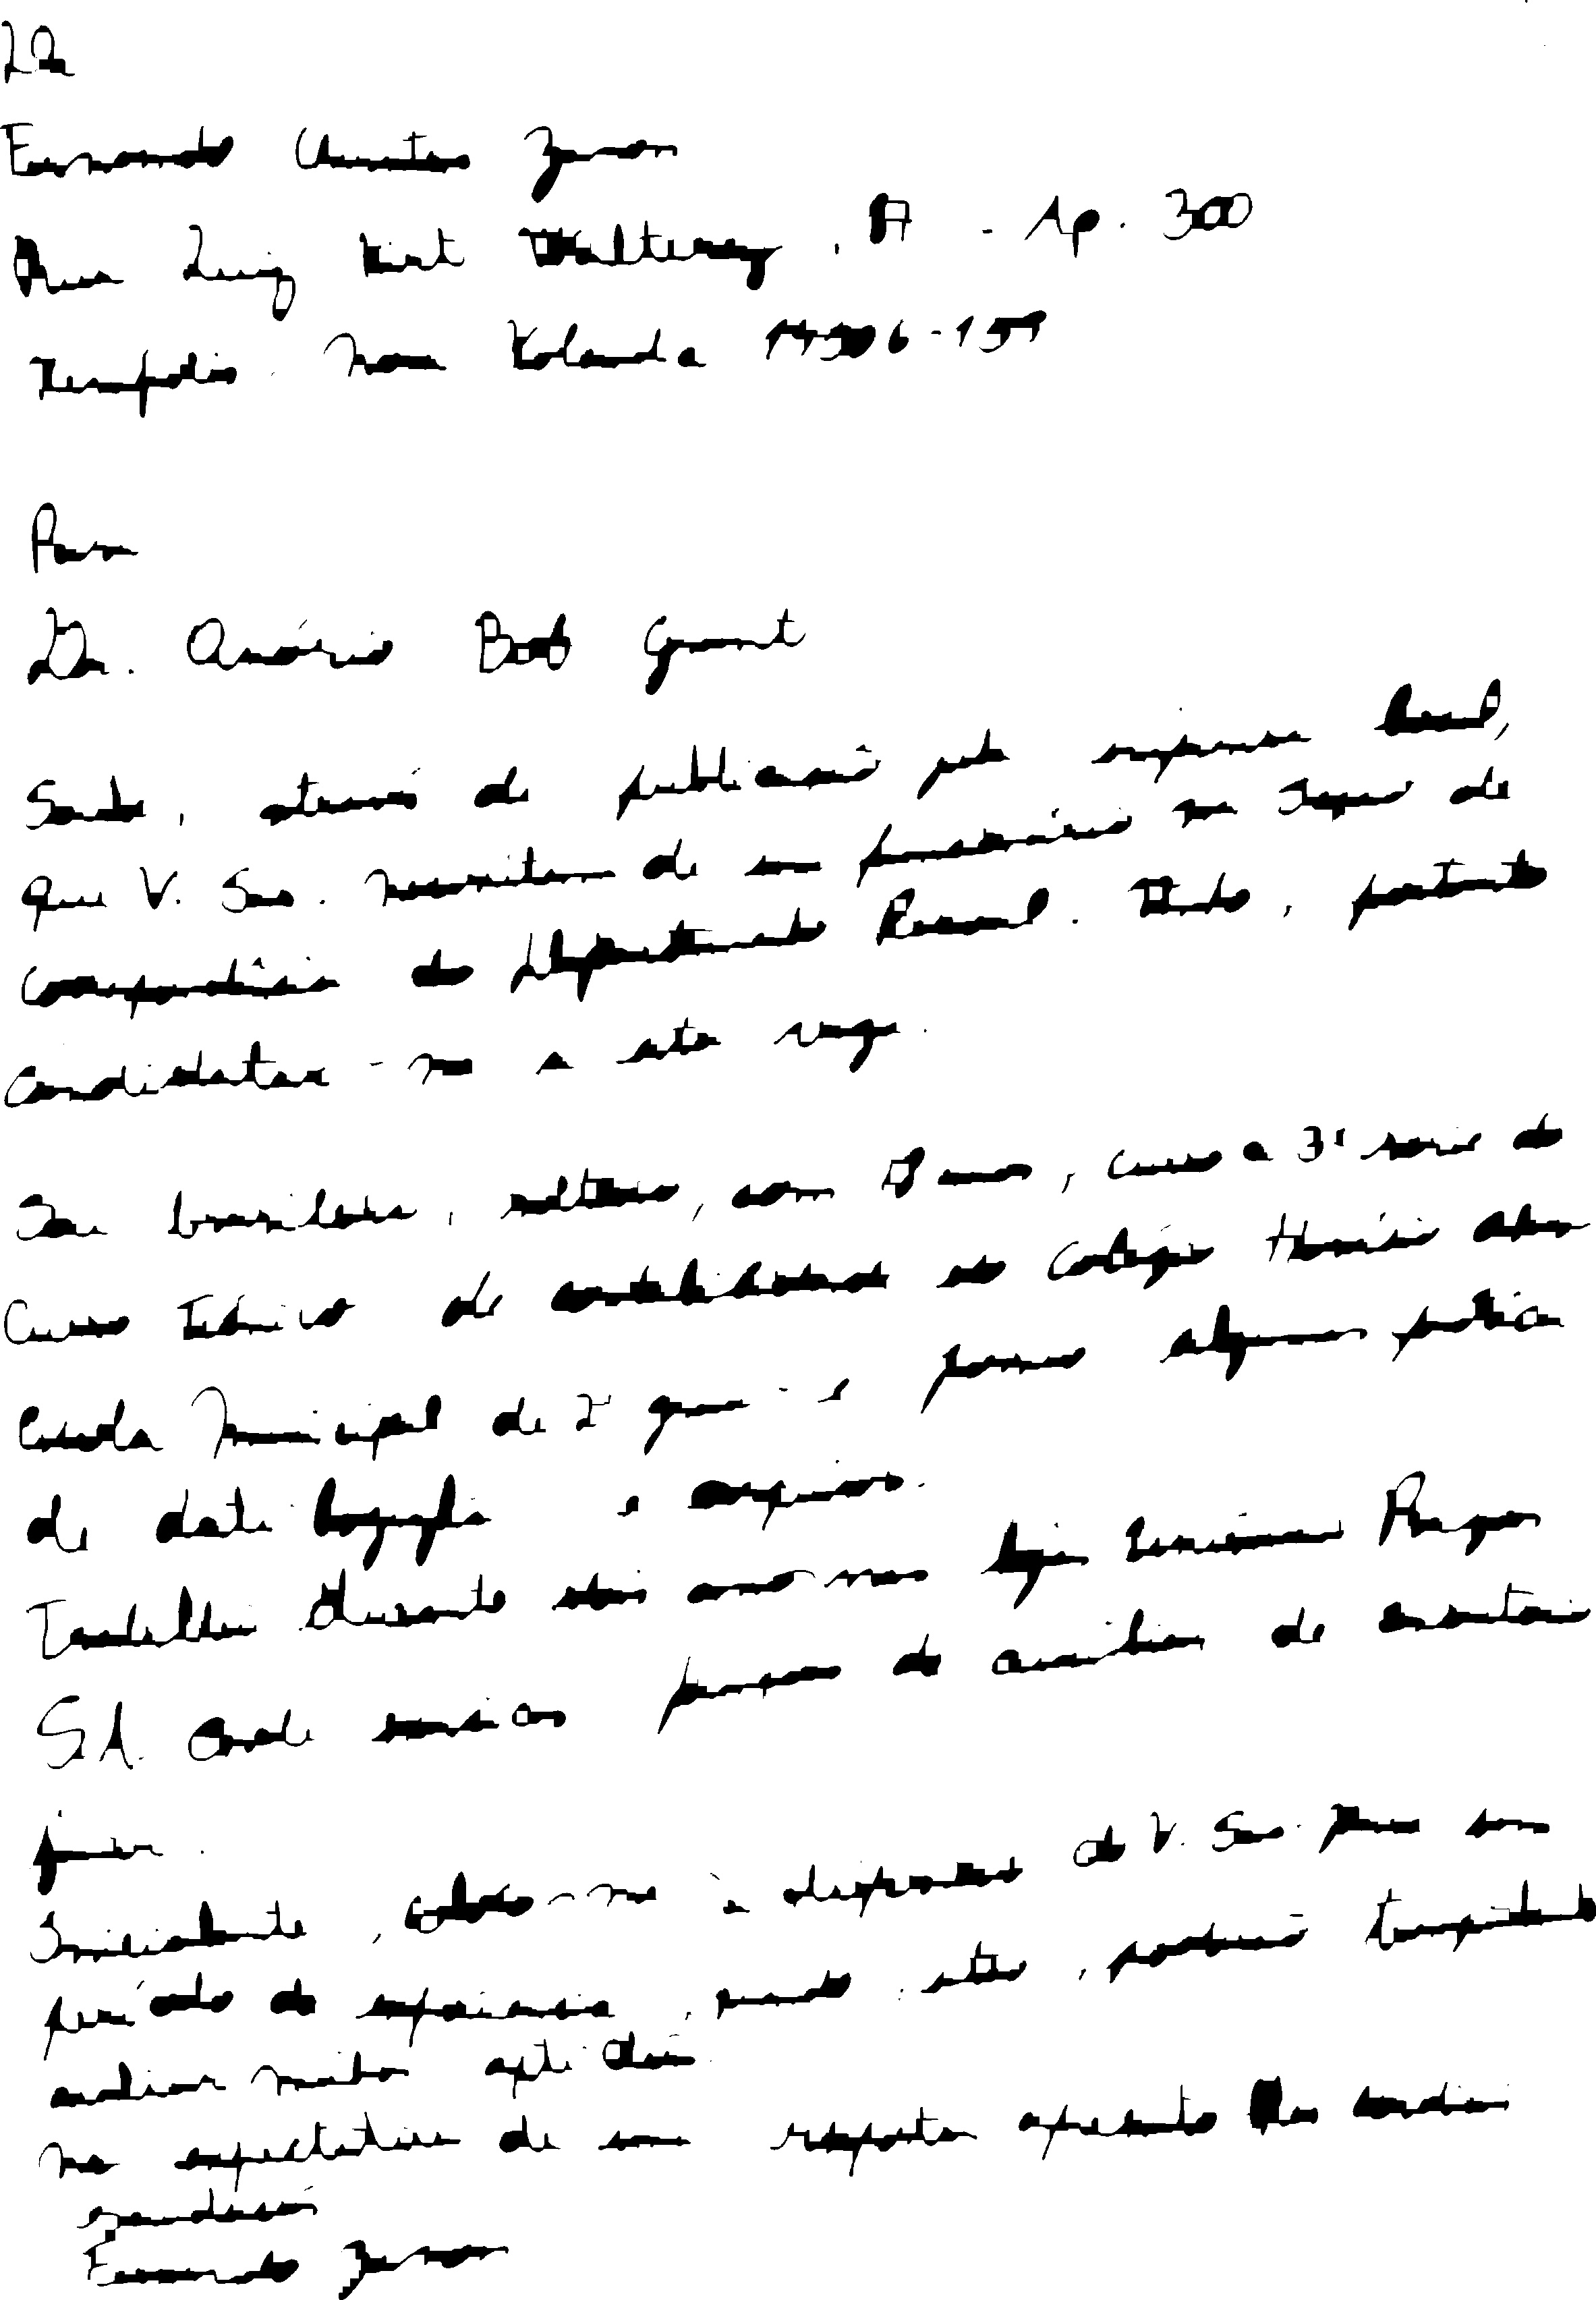 De
Fernando Zerman
Rua Luiz Kirt Waltersey, A - Ap. 300
Nova Yolanda
Para
Dr. Onório Bob Grant
Sendo, através de publicação pela imprensa local,
que V. Sas. necessitam de um funcionário na seção de
correspondência do Departamento Pessoal. Venho, portanto
candidatar-me a esta vaga.
Sou brasileiro, solteiro, com anos, curso a 3ª série do
Curso Técnico de contabilidade no Colégio Honório
Escola Municipal de 2º grau - e possuo alguma prática
de datilografia e arquivo.
Trabalhei durante dois anos nas lojas
S.A. onde exercia as funções de auxiliar de escritório
júnior.
Inicialmente, coloco-me à disposição de V. Sas. para um
período de experiência, quando, então, poderão
avaliar minha aptidão.
na expectativa de uma resposta apresento cordiais
saudações
Fernando Zerman